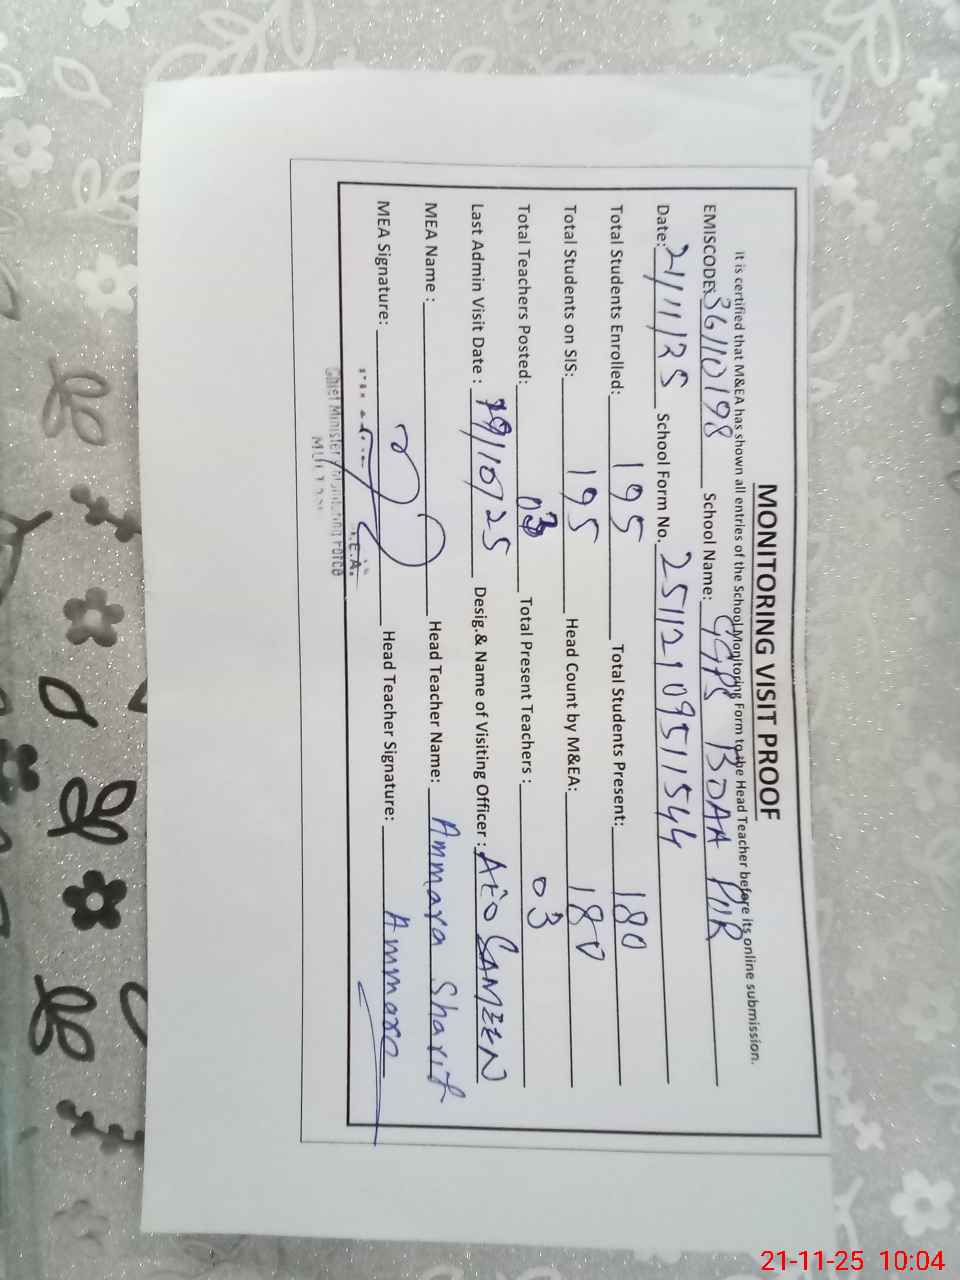 MONITORING VISIT PROOF
It is certified that M&EA has shown all entries of the School Monitoring Form to the Head Teacher before its online submission.
EMISCODE: 36110198 School Name: GGPS BOAA PUR
Date: 21/11/25 School Form No. 25112109511544
Total Students Enrolled: 195 Total Students Present: 180
Total Students on SIS: 195 Head Count by M&EA: 180
Total Teachers Posted: 03 Total Present Teachers : 03
Last Admin Visit Date : 29/10/25 Desig.& Name of Visiting Officer : AEO SAMEEN
MEA Name : Head Teacher Name: Ammara Sharif
MEA Signature: Head Teacher Signature: Ammara
M.E.A.
Chief Minister Monitoring Force
21-11-25 10:04